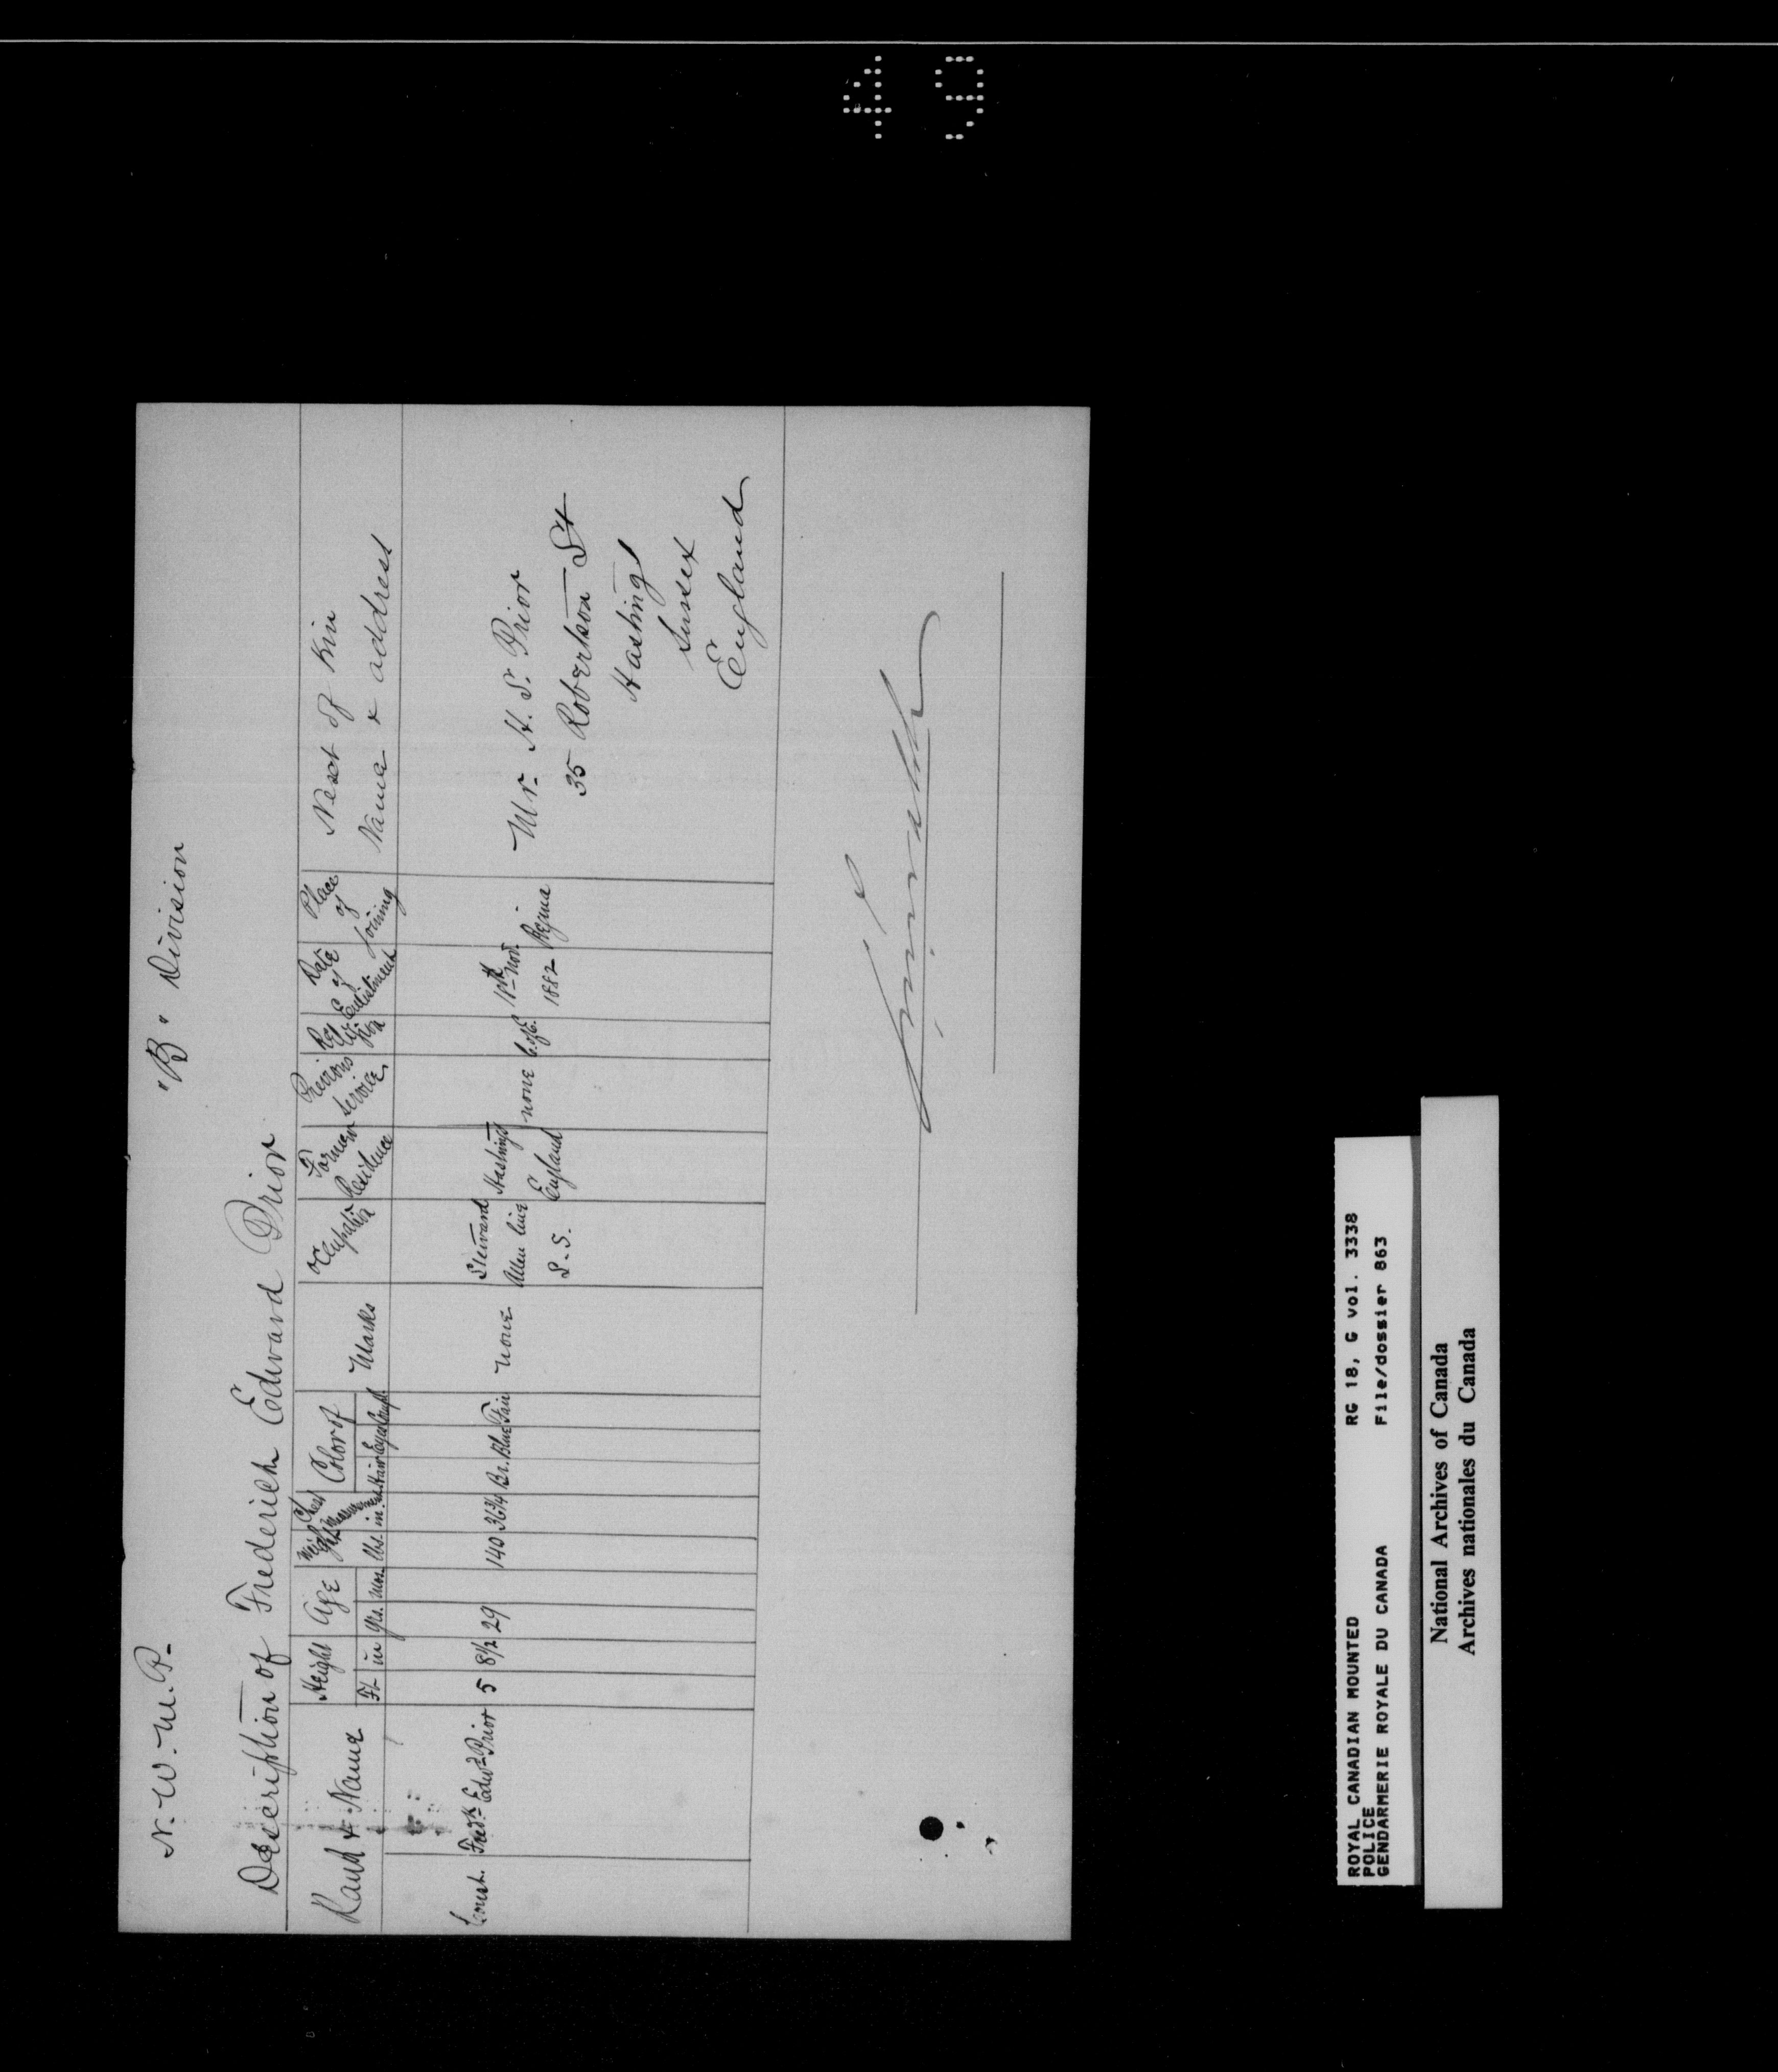 49
N. W. M. P. "B" Division
Description of Frederick Edward Prior
Rank & Name
Height
Ft in
Age
Yrs. Mos.
Weight
lbs.
Chest
in.
Color of
Hair Eyes Compl.
Marks
Occupation
Former Residence
Previous Service
Religion
Date of Enlistment
Place of Joining
Next of Kin
Name & address
Const. Fredk. Edwd. Prior 5 8½ 29 140 36¾ Br. Blue Fair none
Steward
Allen line
S.S.
Hastings
England
none
C. of E.
Nov.
1882
Regina
Mr. H. S. Prior
35 Robertson St
Hastings
Sussex
England
ROYAL CANADIAN MOUNTED
POLICE
GENDARMERIE ROYALE DU CANADA
RG 18, G vol. 3338
File/dossier 863
National Archives of Canada
Archives nationales du Canada